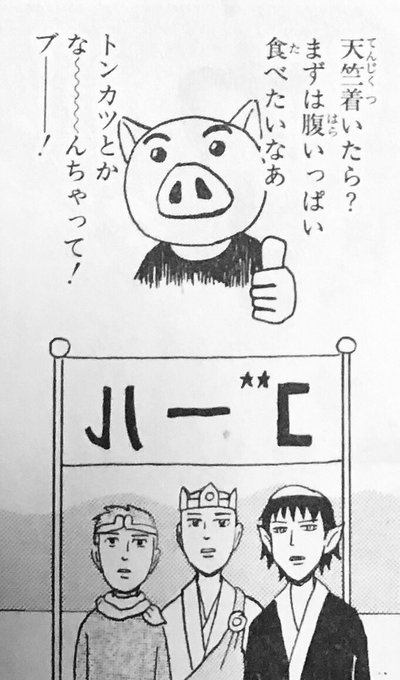 天竺着いたら？
まずは腹いっぱい
食べたいなあ
トンカツとか
な〜〜〜〜んちゃって！
ブ―――！
ゴール